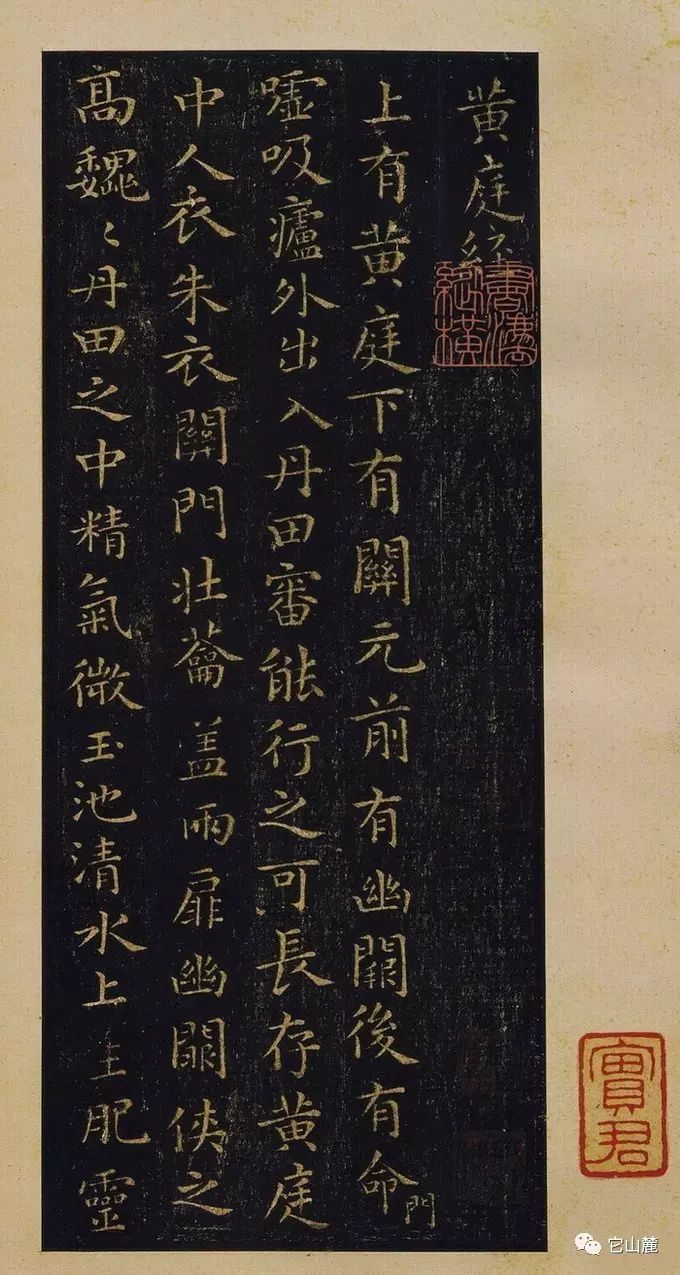 黄庭經
上有黄庭下有關元前有幽闕後有命門
噓吸廬外出入丹田審能行之可長存黄庭
中人衣朱衣關門壮蘥盖兩扉幽闕侠之
高巍〻丹田之中精氣微玉池清水上生肥靈
實君
它山麓